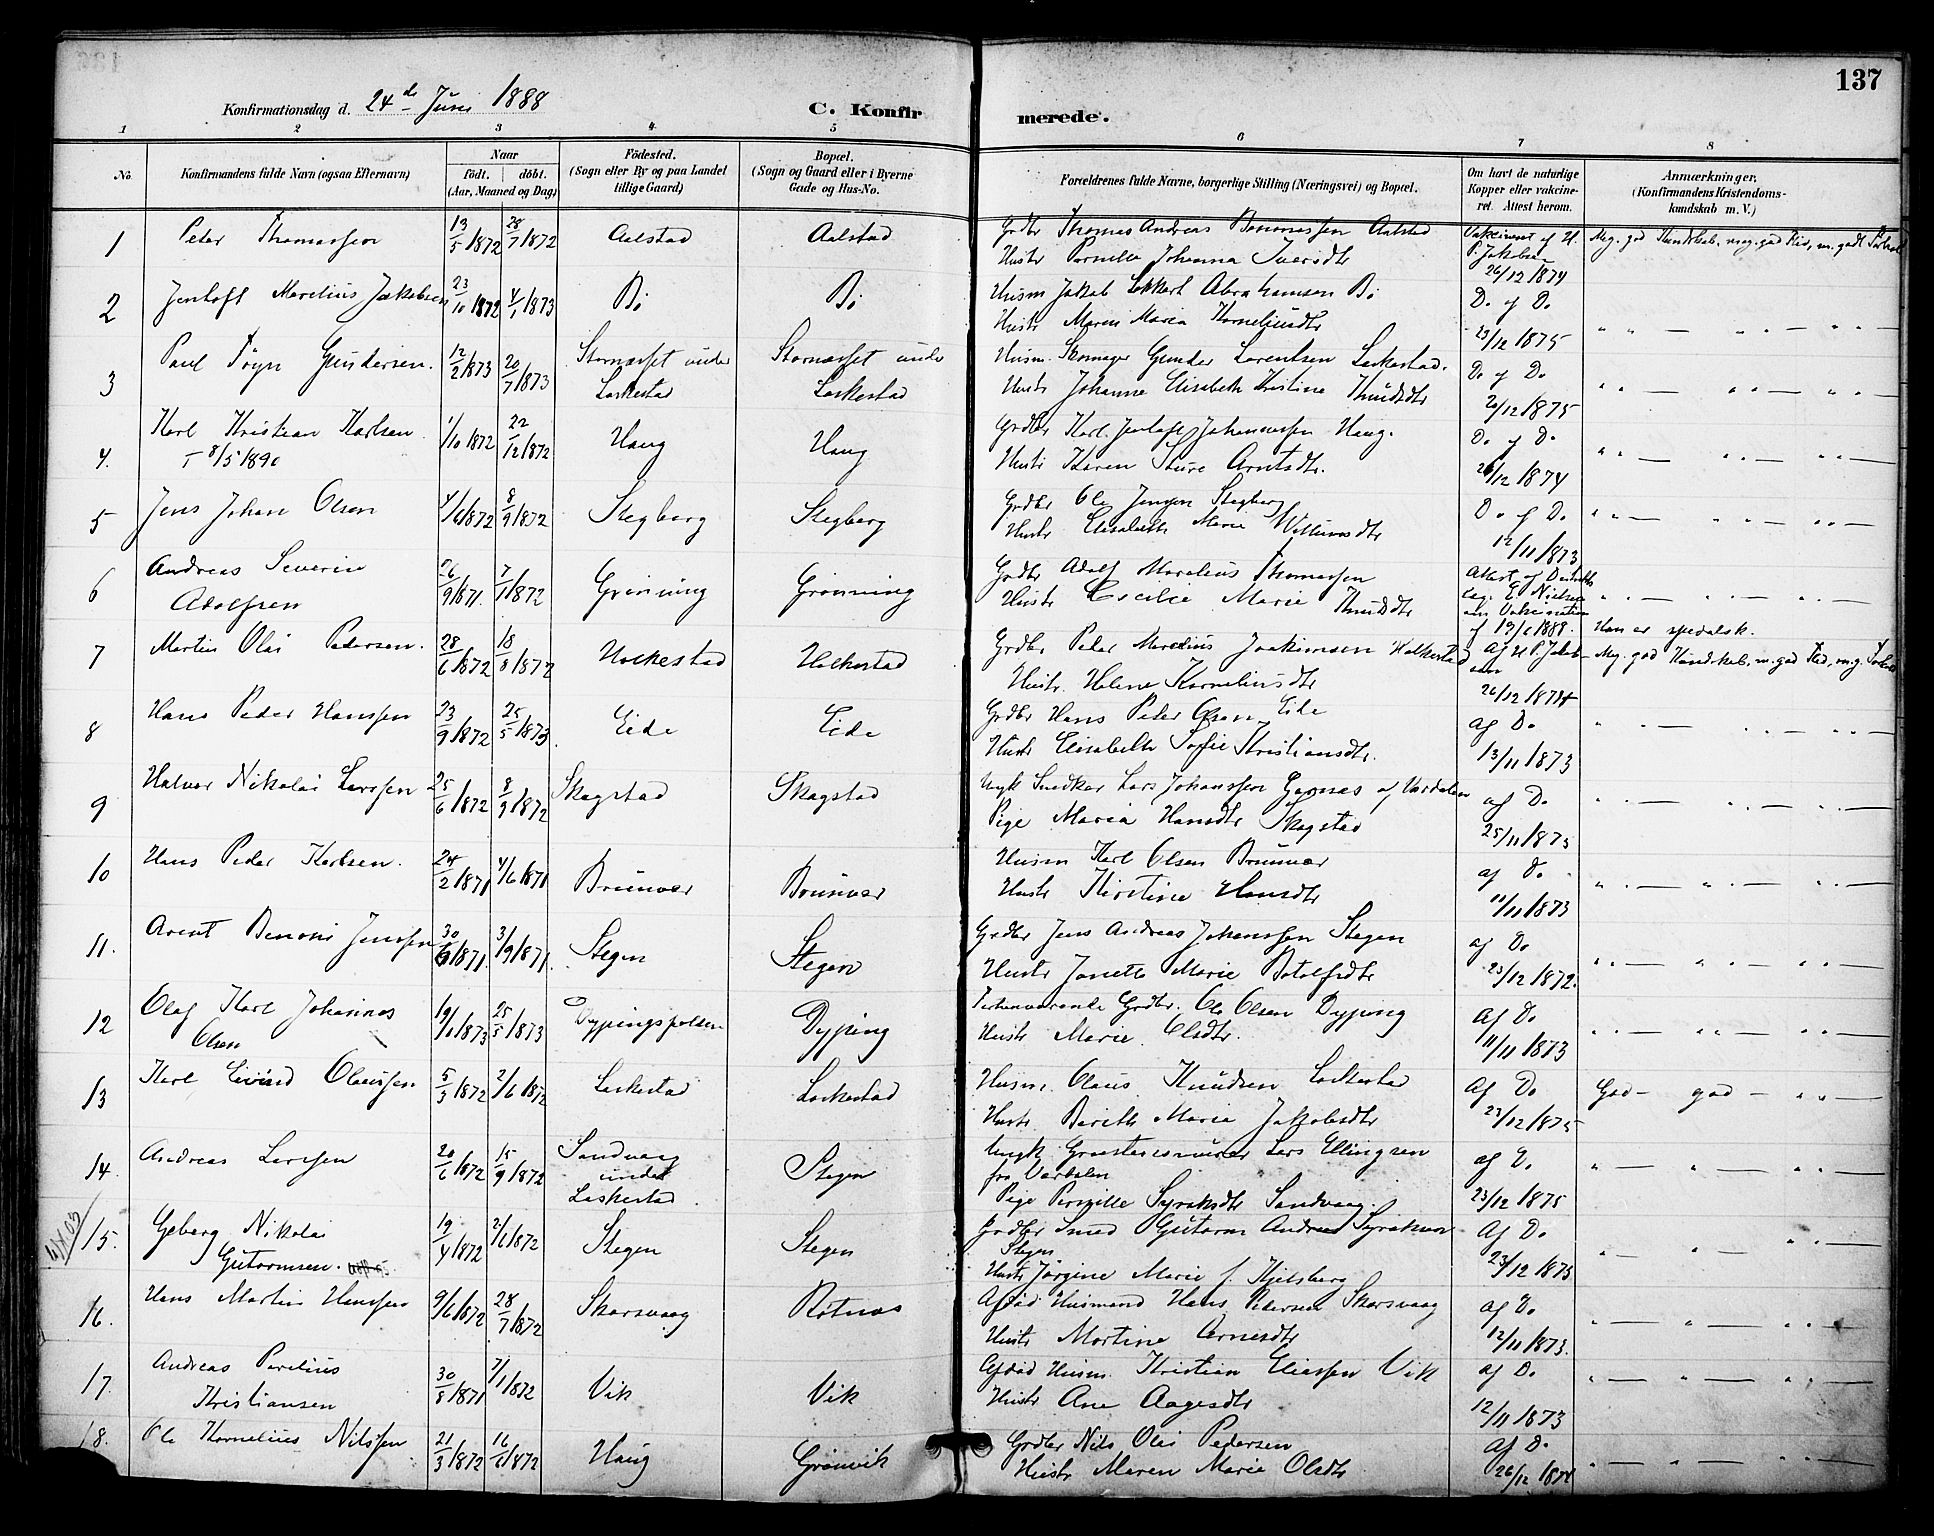 137
Konfirmationsdag d. 24de Juni 1888
C. Konfirmerede.
1 2 3 4 5 6 7 8
No.
Konfirmandens fulde Navn (ogsaa Efternavn)
Naar
födt. döbt.
(Aar, Maaned og Dag)
Födested.
(Sogn eller By og paa Landet
tillige Gaard)
Bopæl.
(Sogn og Gaard eller i Byerne
Gade og Hus-No.
Forældrenes fulde Navne, borgerlige Stilling (Næringsvei) og Bopæl.
Om havt de naturlige
Kopper eller vakcine-
ret. Attest herom.
Anmærkninger,
(Konfirmandens Kristendoms-
kundskab m. V.)
1 Peder Thomassen 13/5 1872 28/7 1872 Aalstad Aalstad Grdbr Thomas Andreas Aalstad Vakcineret af H.
Hustr Pernille Johanna Iversdtr P. Jakobsen
26/12 1874
Meg. god Kundskab, meg. god Flid, m. godt Forhold
2 Jentoft Marelius Jakobsen 23/10 1872 4/1 1873 Bö Bö Husm Jakob Abrahamsen Bö Do af Do
Hustr Maren Maria Korneliusdtr 23/12 1875
3 Paul Töger Gundersen. 12/2 1873 20/7 1873 Stornæsset under Stornæsset under Husm. Skomager Gunder Lorentsen Laskestad. Do af Do
Laskestad Laskestad Hustr Johanna Elisabeth Kristine Knudsdtr 20/12 1875
4. Karl Kristian Karlsen. 1/10 1872 22/12 1872 Haug Haug Grdbr Karl Jentoft Johannessen Haug. Do af Do
† 8/5 1890 Hustr Karen Arntsdtr. 26/12 1874
5 Jens Johan Olsen 4/6 1872 8/9 1872 Stegberg Stegberg Grdbr Ole Jensen Stegberg Do af Do
Hustr Elisabeth Marie Willumsdtr 12/11 1873
6 Andreas Severin 26/9 1871. 7/1 1872 Grönning Grönning Grdbr Adolf Marelius Thomassen Attest af Distrikts
Adolfsen Hustr Cecilie Marie Knudsdtr læg. E. Nielsen
om Vakcination
af 19/6 1888. Han er spedalsk.
7 Martin Olai Pedersen. 28/6 1872 18/8 1872 Holkestad Holkestad Grdbr Peder Meredius Joakimsen Holkestad Af H. P. Jakob-
sen Meg. god Kundskab, m. god Flid, m. g. Forhold
Hustr. Helene Korneliusdtr 26/12 1874
8 Hans Peder Hanssen 23/9 1872 25/5 1873. Eide Eide Grdbr Hans Peter Olsen Eide af Do
Hustr Elisabeth Sofie Kristiansdtr. 13/11 1873
9 Halvor Nikolai Larssen 25/6 1872 8/9 1872 Skagstad Skagstad Ungk Snedker Lars Johanssen af Værdalen af Do
Pige Maria Hansdtr Skagstad 25/11 1873
10 Hans Peder Karlsen. 24/2 1871 4/6 1871 Brunvær Brunvær Husm Karl Olsen Brunvær af Do
Hustr Kirstine Hansdtr 11/11 1873
11. Arent Benoni Jenssen 30/6 1871. 3/9 1871. Stegen Stegen Grdbr Jens Andreas Johanssen Stegen af Do
Hustr Janette Marie Botolfsdtr 23/12 1872.
12 Olaf Karl Johannes 19/1 1873 25/5 1873 Dyping Forhenværende Grdbr. Ole Olsen Dyping Af Do
Olsen Hustr Marie Olsdtr. 11/11 1873
13 Karl Eivind Claussen. 5/3 1872 2/6 1872 Laskestad Laskestad Husm. Claus Knudsen Laskestad Af Do God - god -
Hustr Berith Maria Jakobsdtr 23/12 1875
14. Andreas Larssen 20/6 1872 15/9 1872 Sandvaag Stegen Ungk Graastensmurer Lars Ellingsen af Do
under fra Værdalen
Laskestad. Pige Pernille Syraksdtr Sandvaag. 23/12 1875
15. Nikolai 19/4 1872 2/6 1872 Stegen Stegen Grdbr Smed Gutorm Andreas Syraksen Af Do
Gutormsen. Stegen
Hustr Jörgine Marie f. Kjelsberg 23/12 1875
16. Hans Martin Hanssen 9/6 1872 28/7 1872 Skarsvaag Rotnæs Afdöd Husmand Hans Pedersen Skarsvaag af Do
Hustr Martine Arnesdtr 12/11 1873.
17. Andreas Parelius 30/8 1871 7/1 1872 Vik Vik Afdöd Husm. Kristian Eliassen Vik af Do
Kristiansen Hustr Ane Aagesdtr 12/11 1873
18. Ole Kornelius Nilssen 21/3 1872 16/6 1872 Haug Grönvik Grdbr Nils Olai Pedersen Af Do
Hustr Maren Marie Olsdtr 26/12 1874